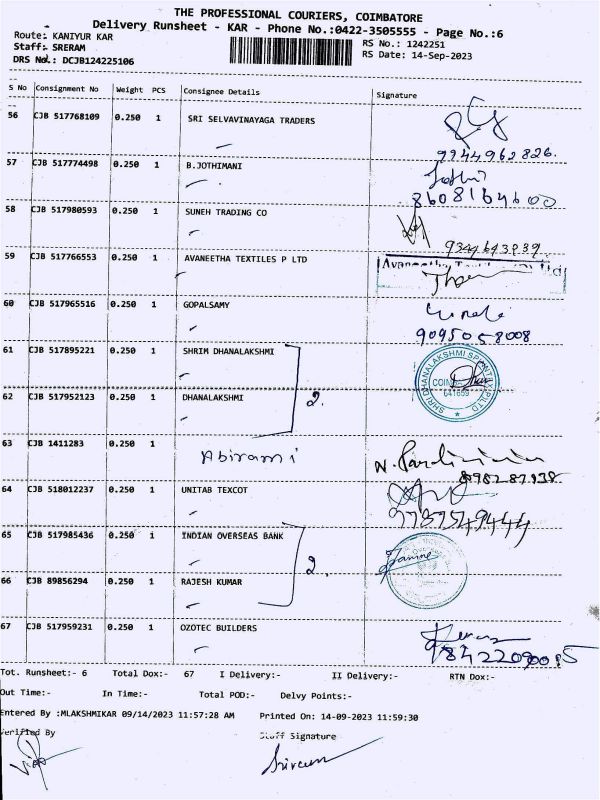 THE PROFESSIONAL COURIERS, COIMBATORE
Delivery Runsheet - KAR - Phone No.:0422-3505555 - Page No.:6
Route: KANIYUR KAR
RS No.: 1242251
Staff: SRERAM
RS Date: 14-Sep-2023
DRS No.: DCJB124225106
S No Consignment No Weight PCS Consignee Details Signature
56 CJB 517768109 0.250 1 SRI SELVAVINAYAGA TRADERS
9944962826.
57 CJB 517774498 0.250 1 B.JOTHIMANI
8608164600
58 CJB 517980593 0.250 1 SUNEH TRADING CO
9344643939
59 CJB 517766553 0.250 1 AVANEETHA TEXTILES P LTD
Avaneetha Ltd
60 CJB 517965516 0.250 1 GOPALSAMY
9095058008
61 CJB 517895221 0.250 1 SHRIM DHANALAKSHMI
2.
SHRI DHANALAKSHMI SPINTEX P LTD
641659
62 CJB 517952123 0.250 1 DHANALAKSHMI
63 CJB 1411283 0.250 1 Abirami
64 CJB 518012237 0.250 1 UNITAB TEXCOT
9787549444
65 CJB 517985436 0.250 1 INDIAN OVERSEAS BANK
2.
66 CJB 89856294 0.250 1 RAJESH KUMAR
67 CJB 517959231 0.250 1 OZOTEC BUILDERS
9842209085
Tot. Runsheet:- 6 Total Dox:- 67 I Delivery:- II Delivery:- RTN Dox:-
Out Time:- In Time:- Total POD:- Delvy Points:-
Entered By :MLAKSHMIKAR 09/14/2023 11:57:28 AM Printed On: 14-09-2023 11:59:30
Verified By Staff Signature
Sriram